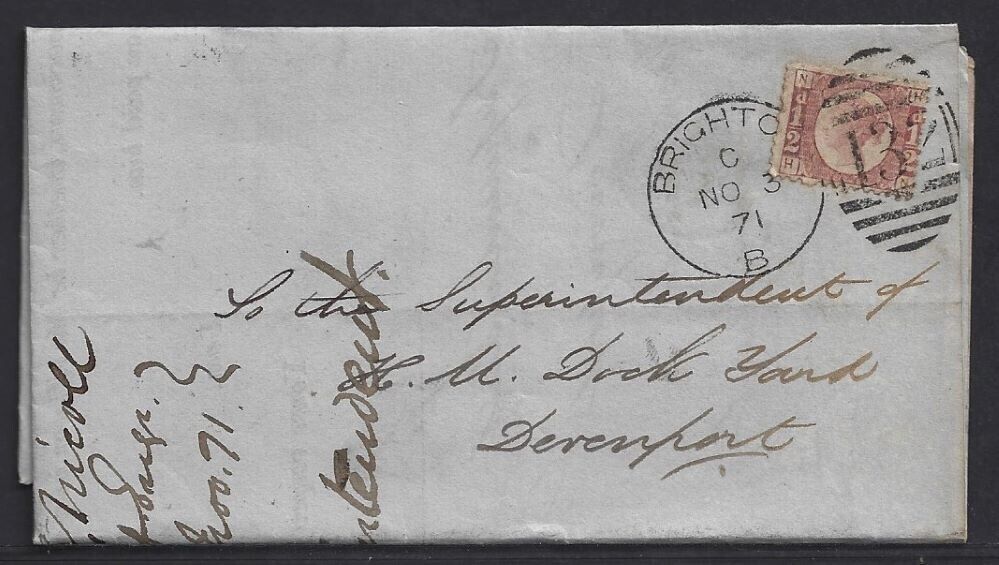 BRIGHTO
C
NO 3
71
B
132
N H
1/2 1/2
H
To the Superintendent of
H. M. Dock Yard
Devenport
Nicoll
Nov. 71
ntendent